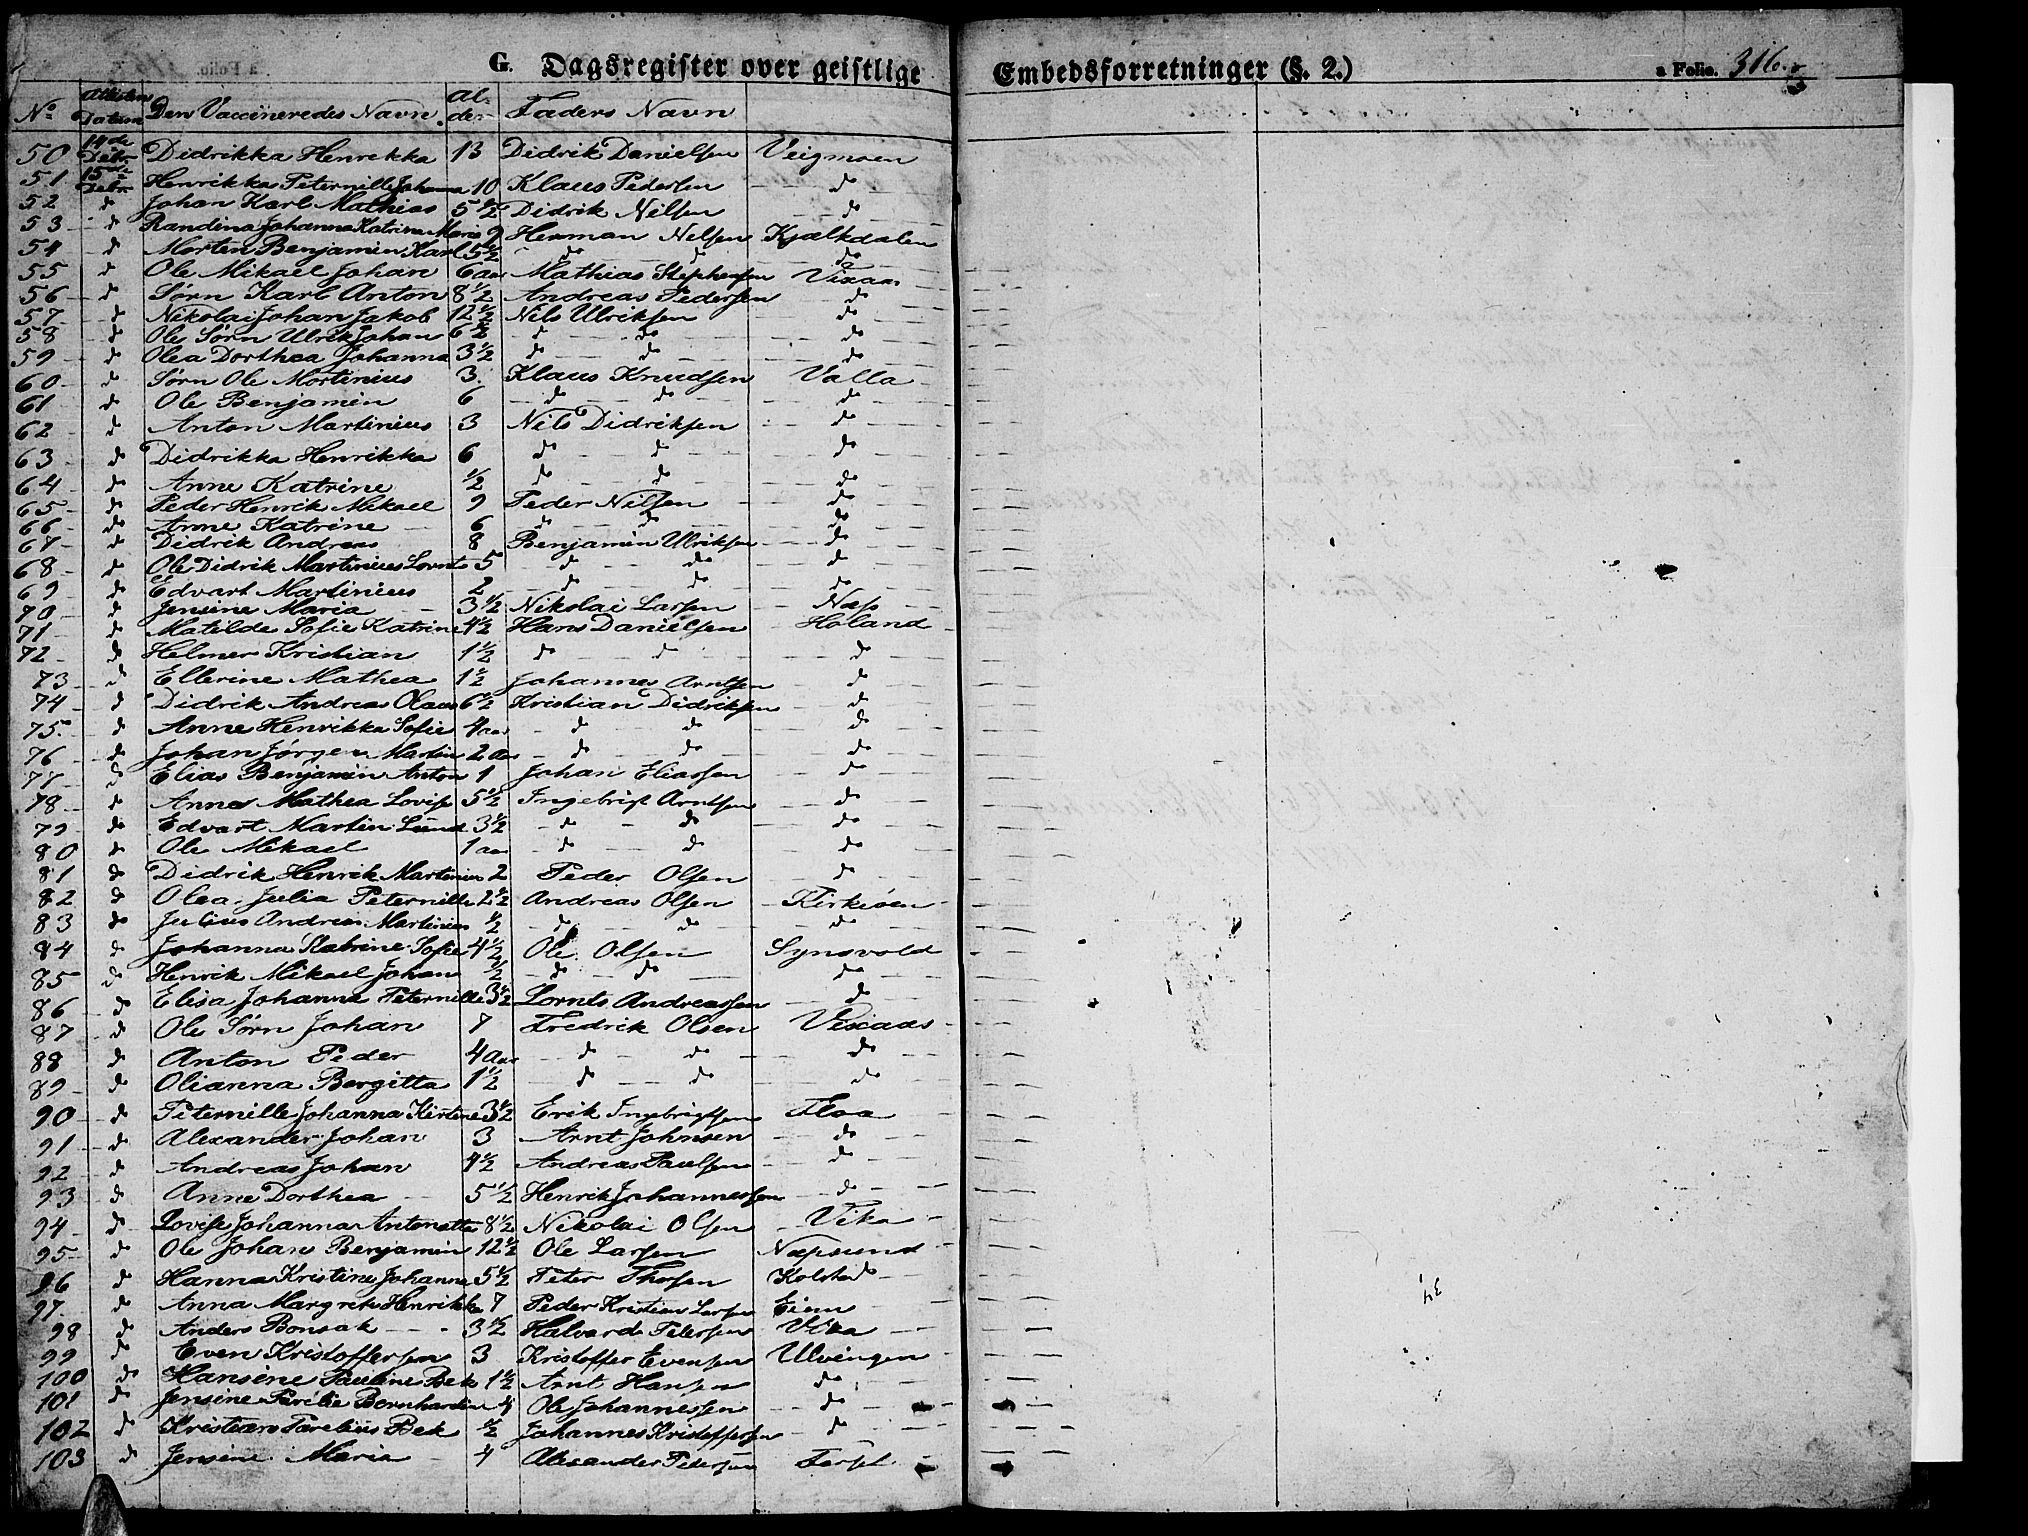 G. Dagsregister over geistlige Embedsforretninger (§. 2.) a Folio. 316.
No Attesten Datum Den Vaccineredes Navn Alder Faders Navn
50 14de Debr. Didrikka Henrekka 13 Didrik Danielsen Veigmoen
51 15de Debr. Henrikka Peternille Johanna 10 Klaus Pedersen do
52 do Johan Karl Mathias 5 1/2 Didrik Nilsen do
53 do Randina Johanna Katrina Maria 9 Herman Nelsen Kjælkdalen
54 do Morten Benjamin Karl 5 1/2 do do do
55 do Ole Mikael Johan 6 aar Mathias Stephensen Vixaas
56 do Sørn Karl Anton 8 1/2 Andreas Pedersen do
57 do Nikolai Johan Jakob 12 1/2 Nils Ulriksen do
58 do Ole Sørn Ulrik Johan 6 1/2 do do do
59 do Olea Dorthea Johanna 3 1/2 do do do
60 do Sørn Ole Mortinius 3 Klaus Knudsen Valla
61 do Ole Benjamin 6 do do do
62 do Anton Martinius 3 Nils Didriksen do
63 do Didrikka Henrikka 6 do do do
64 do Anne Katrine 1/2 do do do
65 do Peder Henrik Mikael 9 Peder Nilsen do
66 do Anne Katrine 6 do do do
67 do Didrik Andreas 8 Benjamin Ulriksen do
68 do Ole Didrik Martinius Lornts 5 do do do
69 do Edvart Martinius 2 do do do
70 do Jensine Maria 3 1/2 Nikolai Larsen Næs
71 do Matilde Sofie Katrine 4 1/2 Hans Danielsen Holand
72 do Helmer Kristian 1 1/2 do do do
73 do Ellerine Mathea 1 1/2 Johannes Arntsen do
74 do Didrik Andreas Olaus 6 1/2 Kristian Didriksen do
75 do Anne Henrikka Sofie 4 aar do do do
76 do Johan Jørgen Martin 2 aar do do do
77 do Elias Benjamin Anton 1 Johan Eliassen do
78 do Anne Mathea Lovise 5 1/2 Ingebrigt Arntsen do
79 do Edvart Martin Lund 3 1/2 do do do
80 do Ole Mikael 1 aar do do do
81 do Didrik Henrik Martinius 2 Peder Olsen do
82 do Olea Julia Peternille 2 1/2 Andreas Olsen Kirkøen
83 do Julius Andreas Martinius 1/2 do do do
84 do Johanna Katrine Sofie 4 1/2 Ole Olsen Synsvold
85 do Henrik Mikael Johan 1/2 do do do
86 do Elisa Johanna Peternille 3 1/2 Lornts Andreassen do
87 do Ole Sørn Johan 7 Fredrik Olsen Vixaas
88 do Anton Peder 4 Aar do do do
89 do Olianna Bergitta 1 1/2 do do do
90 do Peternille Johanna Kirstine 3 1/2 Erik Ingebrigtsen Floa
91 do Alexander Johan 3 Arnt Johnsen do
92 do Andreas Johan 4 1/2 Andreas Paulsen do
93 do Anne Dorthea 5 1/2 Henrik Johannessen do
94 do Lovise Johanna Antonette 8 1/2 Nikolai Olsen Vika
95 do Ole Johan Benjamin 12 1/2 Ole Larsen Næpsund
96 do Hanna Kristine Johanne 5 1/2 Peter Thorsen Kolstad
97 do Anna Margrete Henrikka 7 Peder Kristian Larsen Eiem
98 do Anders Bonsak 3 1/2 Halvard Petersen Vika
99 do Even Kristoffersen 3 Kristoffer Evensen Ulvingen
100 do Hansine Pauline Bek 1 1/2 Arnt Hansen do
101 do Jensine Parelie Bernhardine 4 Ole Johannessen do
102 do Kristian Parelius Bek 1/2 Johannes Kristoffersen do
103 do Jensine Maria 4 Alexander Petersen Forset